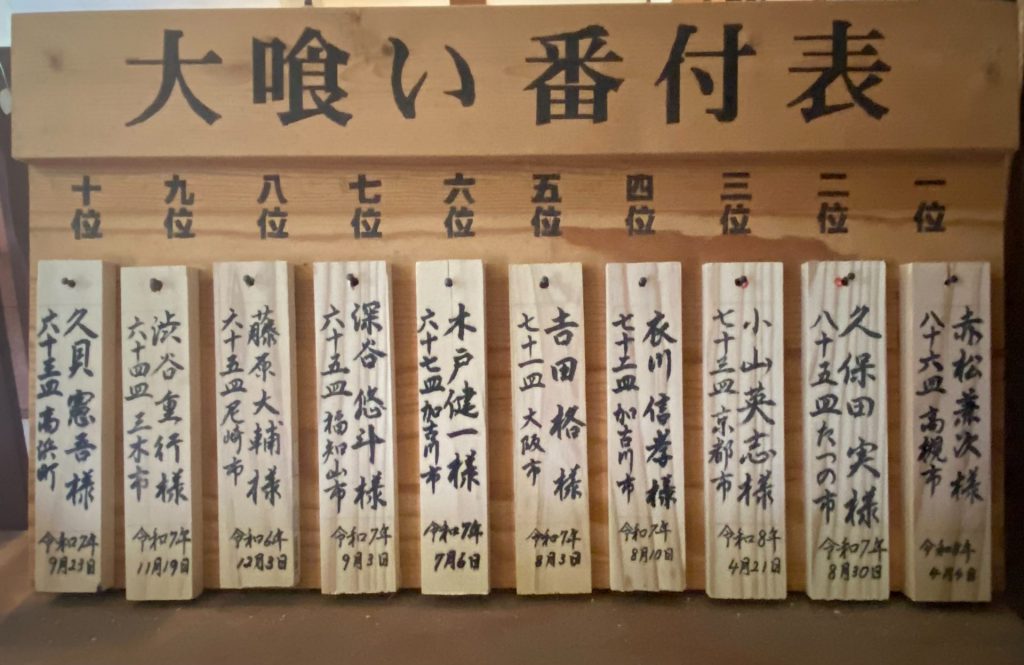 大喰い番付表
一位
赤松兼次様
八十六皿 高槻市
令和8年
4月4日
二位
久保田実様
八十五皿 たつの市
令和7年
8月30日
三位
小山英志様
七十三皿 京都市
令和8年
4月21日
四位
衣川信孝様
七十二皿 加古川市
令和7年
8月10日
五位
吉田格様
七十一皿 大阪市
令和7年
8月3日
六位
木戸健一様
六十七皿 加古川市
令和7年
7月6日
七位
深谷悠斗様
六十五皿 福知山市
令和7年
9月3日
八位
藤原大輔様
六十五皿 尼崎市
令和6年
12月3日
九位
渋谷重行様
六十四皿 三木市
令和7年
11月19日
十位
久貝憲吾様
六十三皿 高浜町
令和7年
9月23日